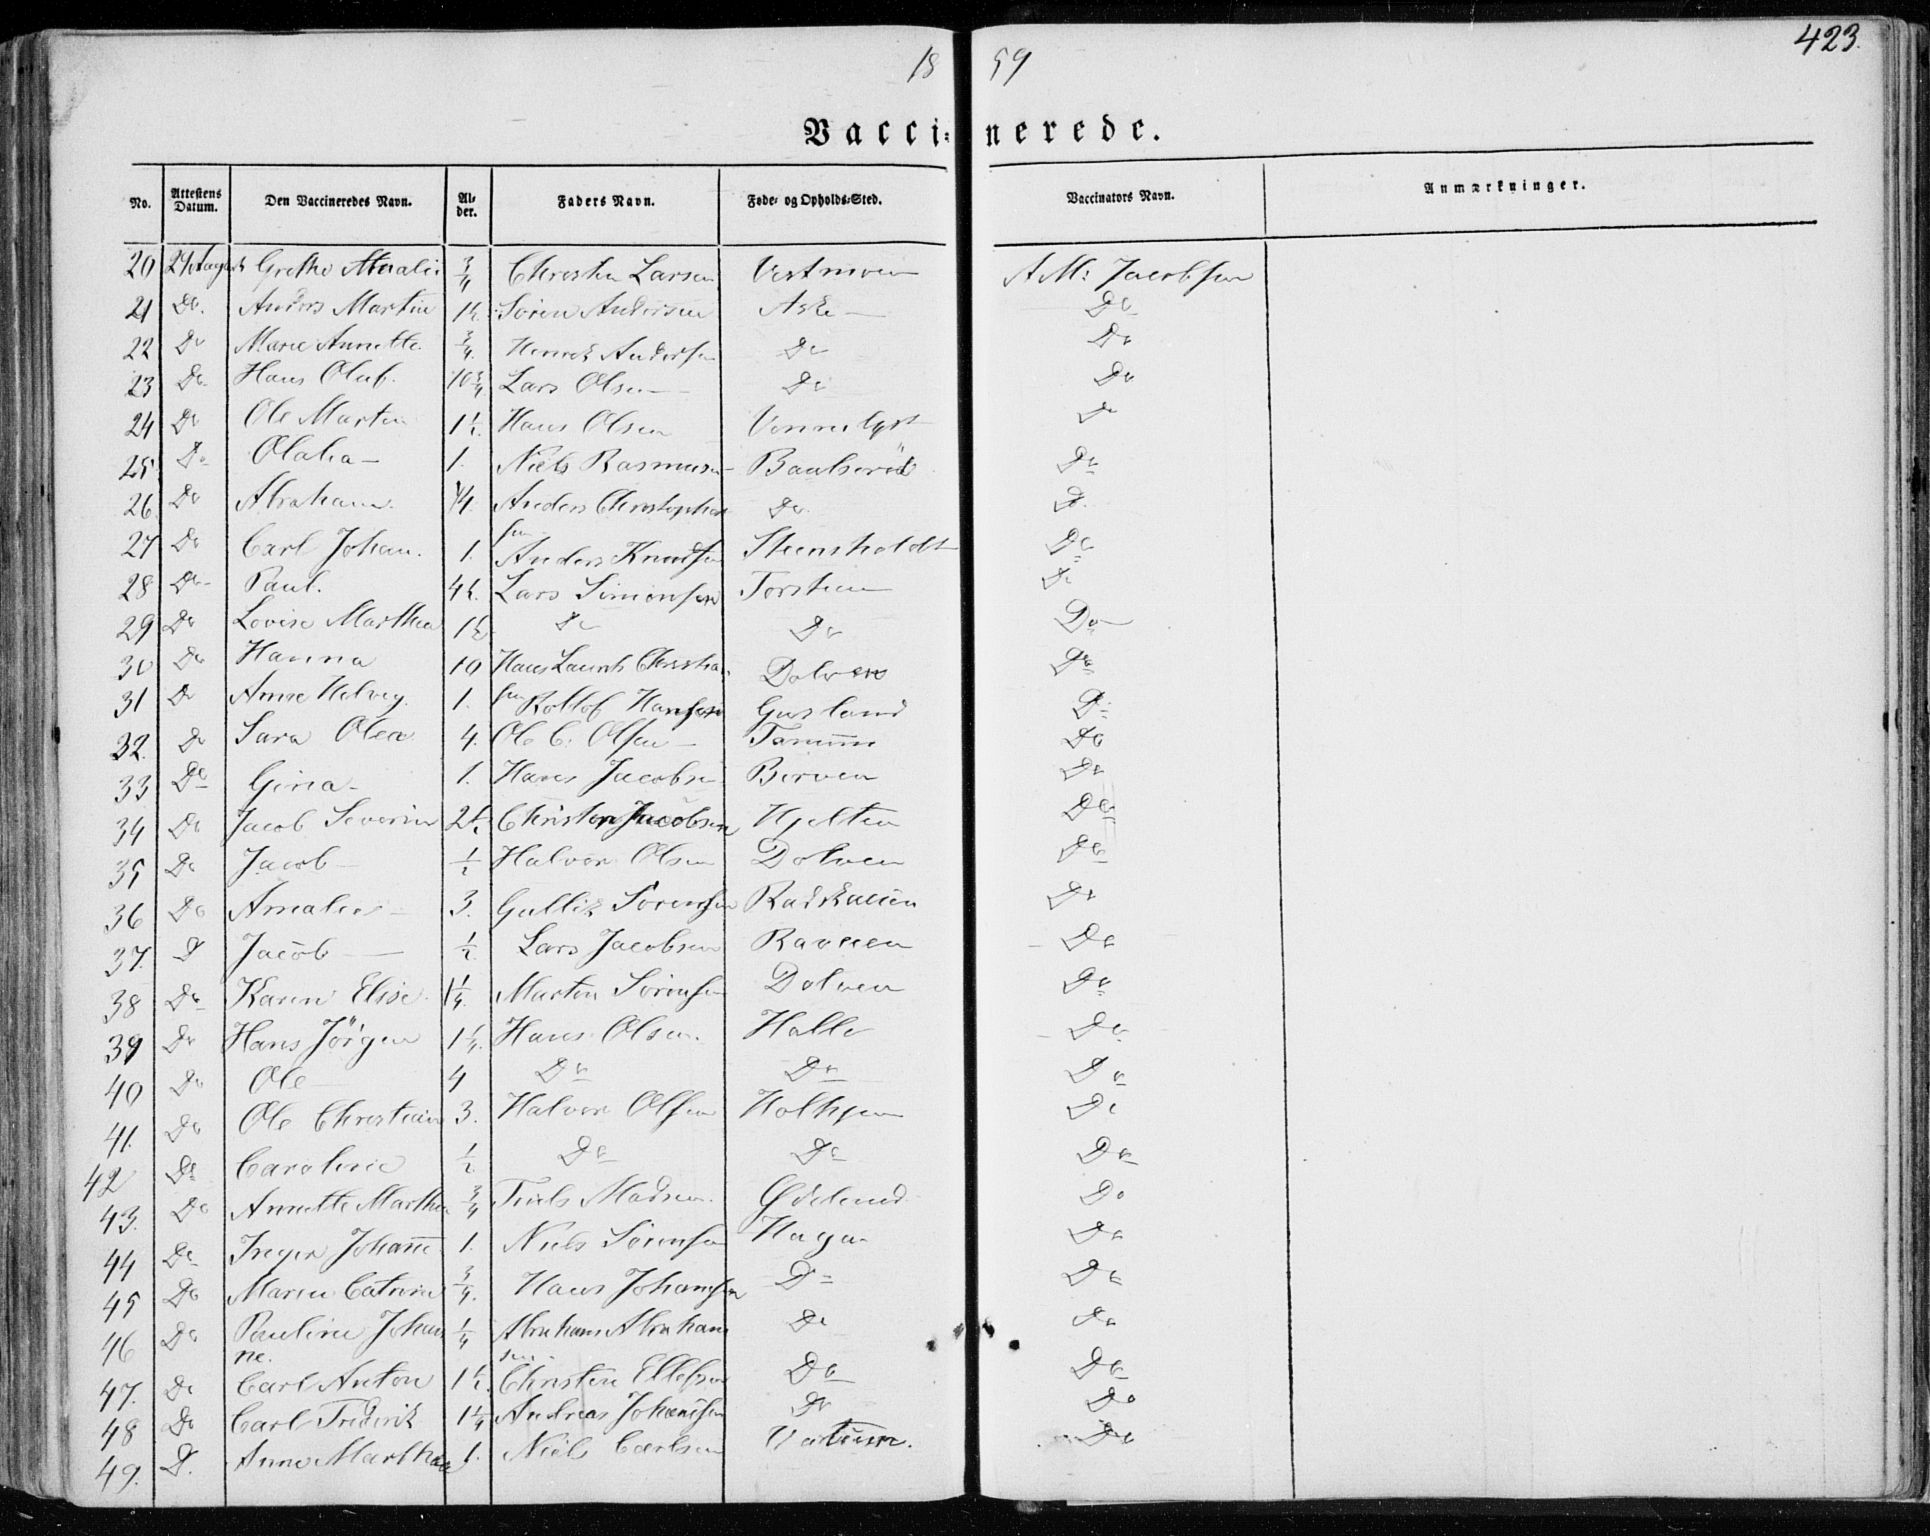 423.
18 59
Vaccinerede.
No. Attestens Datum. Den Vaccineredes Navn. Alder. Faders Navn. Føde- og Opholds-Sted. Vaccinators Navn. Anmærkninger.
20 29 August Grethe Amalie 3/4 Christen Larsen Vestmoen A M: Jacobsen
21 Do. Anders Martin 1½. Søren Andersen Aske — Do
22 Do Maren Annette. 3/4. Henrik Andersen Do Do
23 Do. Hans Oluf. 10 3/4 Lars Olsen — Do Do
24 Do Ole Martin 1½. Hans Olsen Vennelyst Do
25 Do Olalia — 1. Niels Rasmusen — Baulserød Do
26 Do Abraham. 1/4. Anders Christophersen Do. D.
27 Do Carl Johan. 1. Anders Knudsen Steensholdt Do
28 Do Paul. 4½. Lars Simonsen Torstein Do
29 Do Lovise Marthea 1½ Do Do Do
30 Do Hanna 10 Hans Laurits Christiansen Dolven Do
31 Do Anne Helveg 1. Rollof Hansen Gusland Do
32. Do Sara Olea 4. Ole C. Olsen — Tanum Do
33 Do Gina — 1. Hans Jacobsen Berven Do
34 Do Jacob Severin 2½. Christen Jacobsen Hjelten Do
35 Do Jacob — ½ Halvor Olsen Dolven Do
36 Do Amalie — 3. Gullik Sørensen Do
37. D Jacob — ½ Lars Jacobsen Ravnen Do
38 Do Karen Elise. 1¼. Martin Sørensen Dolven Do
39 Do Hans Jörgen 1¼. Hans Olsen. Halle Do
40 Do Ole — 4 Do Do Do
41. Do Ole Christian 3. Halvor Olsen Holtejen Do
42 Do Caroline ½ Do Do Do
43. Do Annette Marthea 3/4 Truls Madsen. Ødelund Do
44 Do Inger Johanne 1. Niels Sørensen Haga Do
45 Do Maren Catrine 3/4. Hans Johansen Do Do
46 Do Pauline Johan 1/4 Abraham Abraham Do Do
ne. sen.
47. Do Carl Anton 1½. Christen Ellefsen Do Do
48 Do Carl Frederik 1¼ Andreas Johansen Do Do
49. D. Anne Marthea 1. Niels Carlsen Do